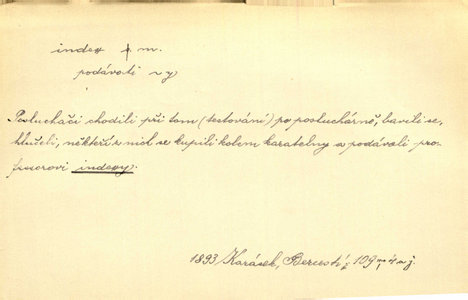 index, m.
podávati ~y
Posluchači chodili při tom (testování) po posluchárně, bavili se,
hlučeli, někteří z nich se kupili kolem karatelny a podávali pro-
fesorovi indexy.
1893 Karásek, 109